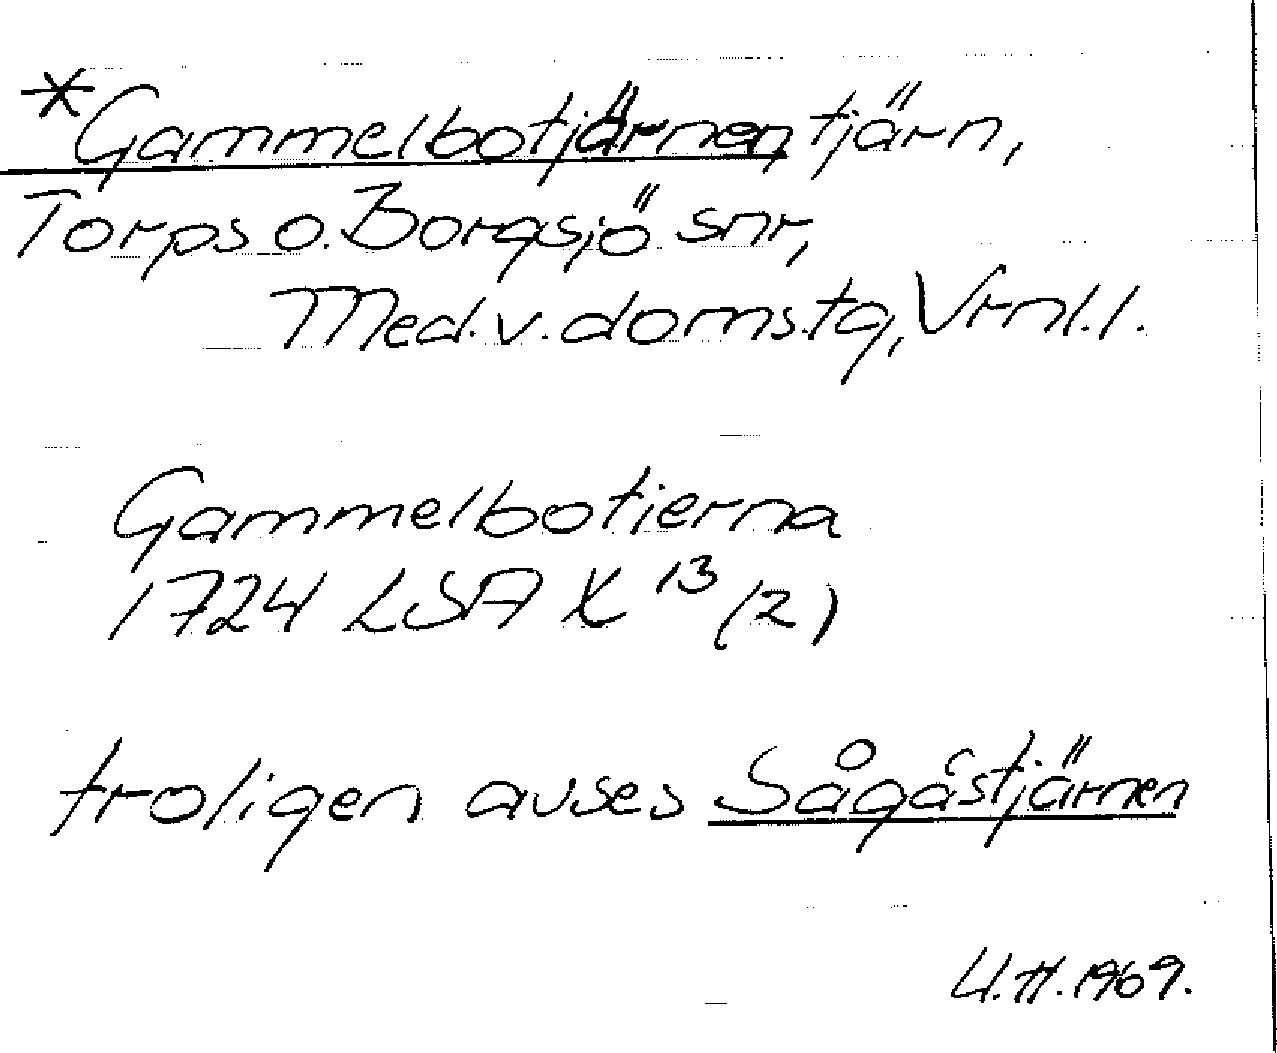 *Gammelbotjärnen tjärn,
Torps o. Borgsjö snr,
Med. v. doms.tg, Vrnl. l.
Gammelbotierna
1724 LSA X 13 (2)
troligen avses Sågåstjärnen
U.H. 1969.